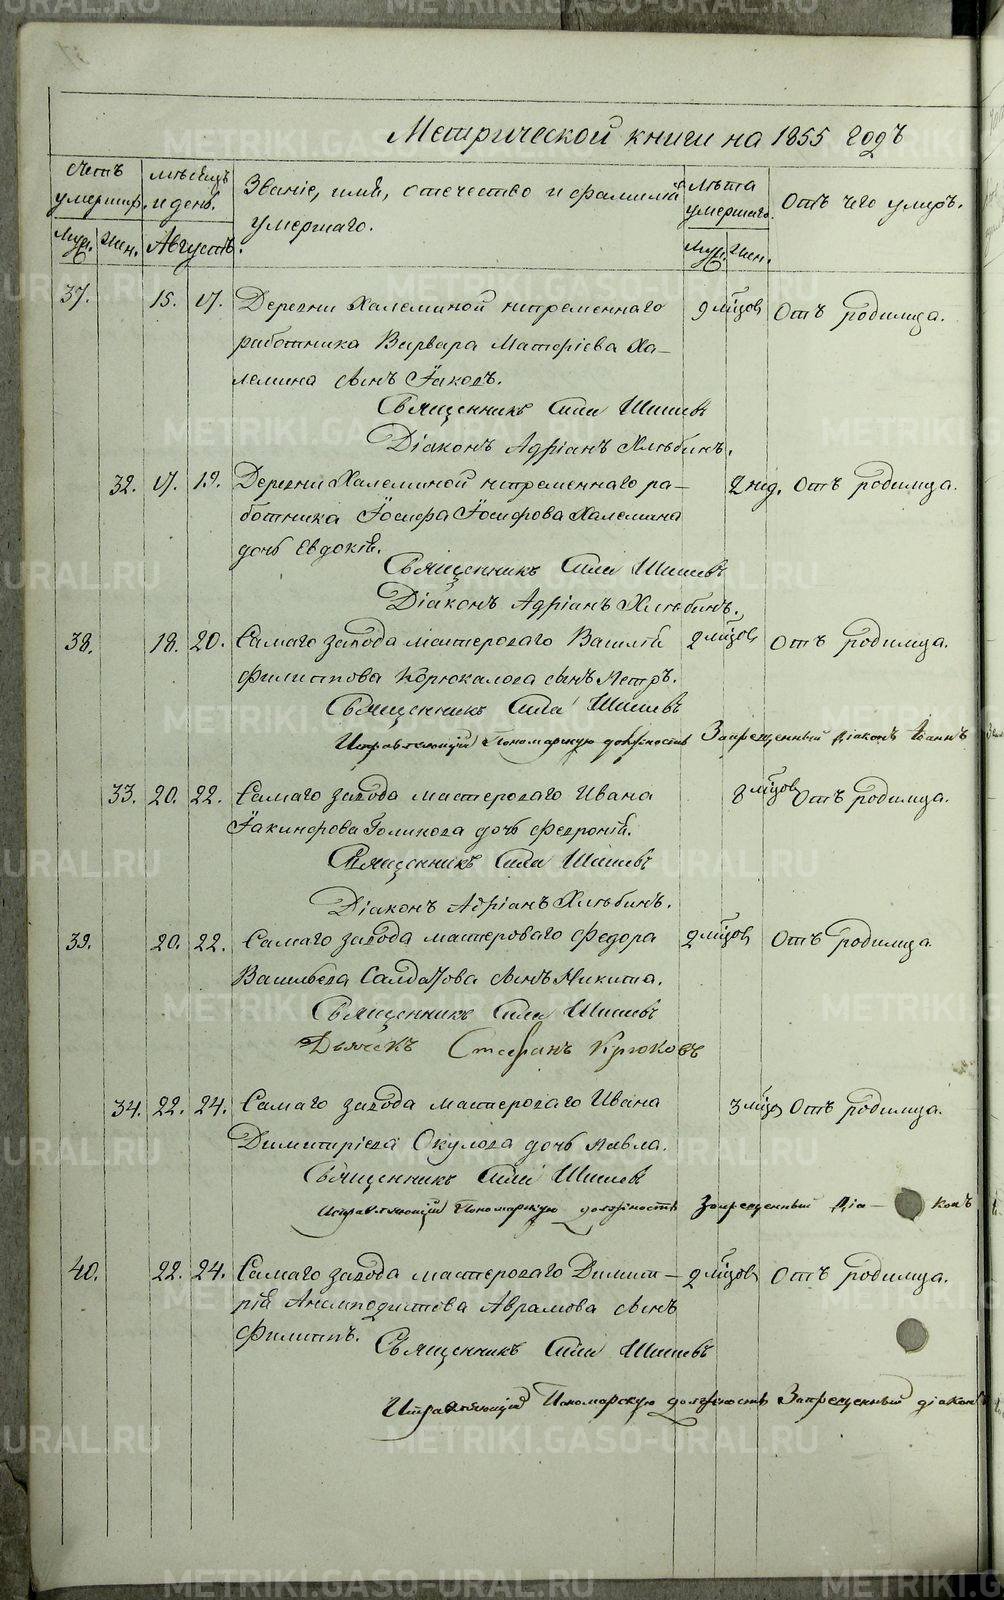 Метрической книги на 1855 годъ
Счетъ умершихъ.
мѣсяцъ и день.
Званіе, имя, отечество и фамилія умершаго.
Лѣта умершаго.
Отъ чего умиръ.
Муж. Жен.
Августъ.
Муж. Жен.
37. 15. 17. Деревни Халеминой непременнаго 9 мѣцов Отъ родимца.
работника Варвара Матфіева Ха-
лемина сынъ Іаковъ.
Священникъ Сила Шишев
Діаконъ Адріанъ Хлѣбинъ.
32. 17. 19. Деревни Халеминой непременнаго ра- 2 нед. Отъ родимца.
ботника Іосифа Іосифова Халемина
дочь Евдокія.
Священникъ Сила Шишев
Діаконъ Адріанъ Хлѣбинъ.
38. 18. 20. Самаго завода мастероваго Василія 2 мѣцов Отъ родимца.
Филиппова Корюкалова сынъ Петръ.
Священникъ Сила Шишев
Исправляющій Пономарскую должность Запрещенный Діаконъ Іоаннъ
33. 20. 22. Самаго завода мастероваго Ивана 8 мѣцов Отъ родимца.
Іакинфова Голикова дочь Февронія.
Священникъ Сила Шишев
Діаконъ Адріанъ Хлѣбинъ.
39. 20. 22. Самаго завода мастероваго Федора 2 мѣцов Отъ родимца.
Васильева Салдатова сынъ Никита.
Священникъ Сила Шишев
Дьячекъ Стефанъ Крюковъ
34. 22. 24. Самаго завода мастероваго Ивана 3 мѣцо Отъ родимца.
Димитріева Окулова дочь Павла.
Священникъ Сила Шишев
Исправляющій Пономарскую должность Запрещенный Діа- конъ
40. 22. 24. Самаго завода мастероваго Димит- 2 мѣцов Отъ родимца.
рія Анемподистова Аврамова сынъ
Филиппъ.
Священникъ Сила Шишев
Исправляющій Пономарскую должность Запрещенный діаконъ
METRIKI.GASO-URAL.RU